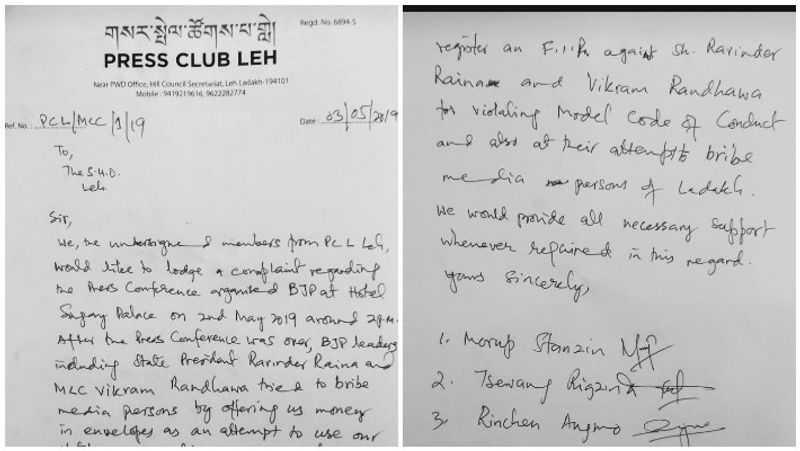 གསར་སྤེལ་ཚོགས་པ་གླེ།
Regd. No. 6894-S
PRESS CLUB LEH
Near PWD Office, Hill Council Secretariat, Leh Ladakh-194101
Mobile : 9419219616, 9622282774
Ref. No. : PCL/MCC/1/19
Date : 03/05/2019
To,
The S.H.O.
Leh.
Sir,
We, the undersigned members from PCL Leh,
would like to lodge a complaint regarding
the Press Conference organised BJP at Hotel
Singay Palace on 2nd May 2019 around
After the Press Conference was over, BJP leaders
including State President Ravinder Raina and
MLC Vikram Randhawa tried to bribe
media persons by offering us money
in envelopes as an attempt to use our
register an F.I.R against Sh. Ravinder
Raina and Vikram Randhawa
for violating Model Code of Conduct
and also at their attempt to bribe
media persons of Ladakh.
We would provide all necessary support
whenever required in this regard.
yours sincerely,
1. Morup Stanzin
2. Tsewang Rigzin
3. Rinchen Angmo